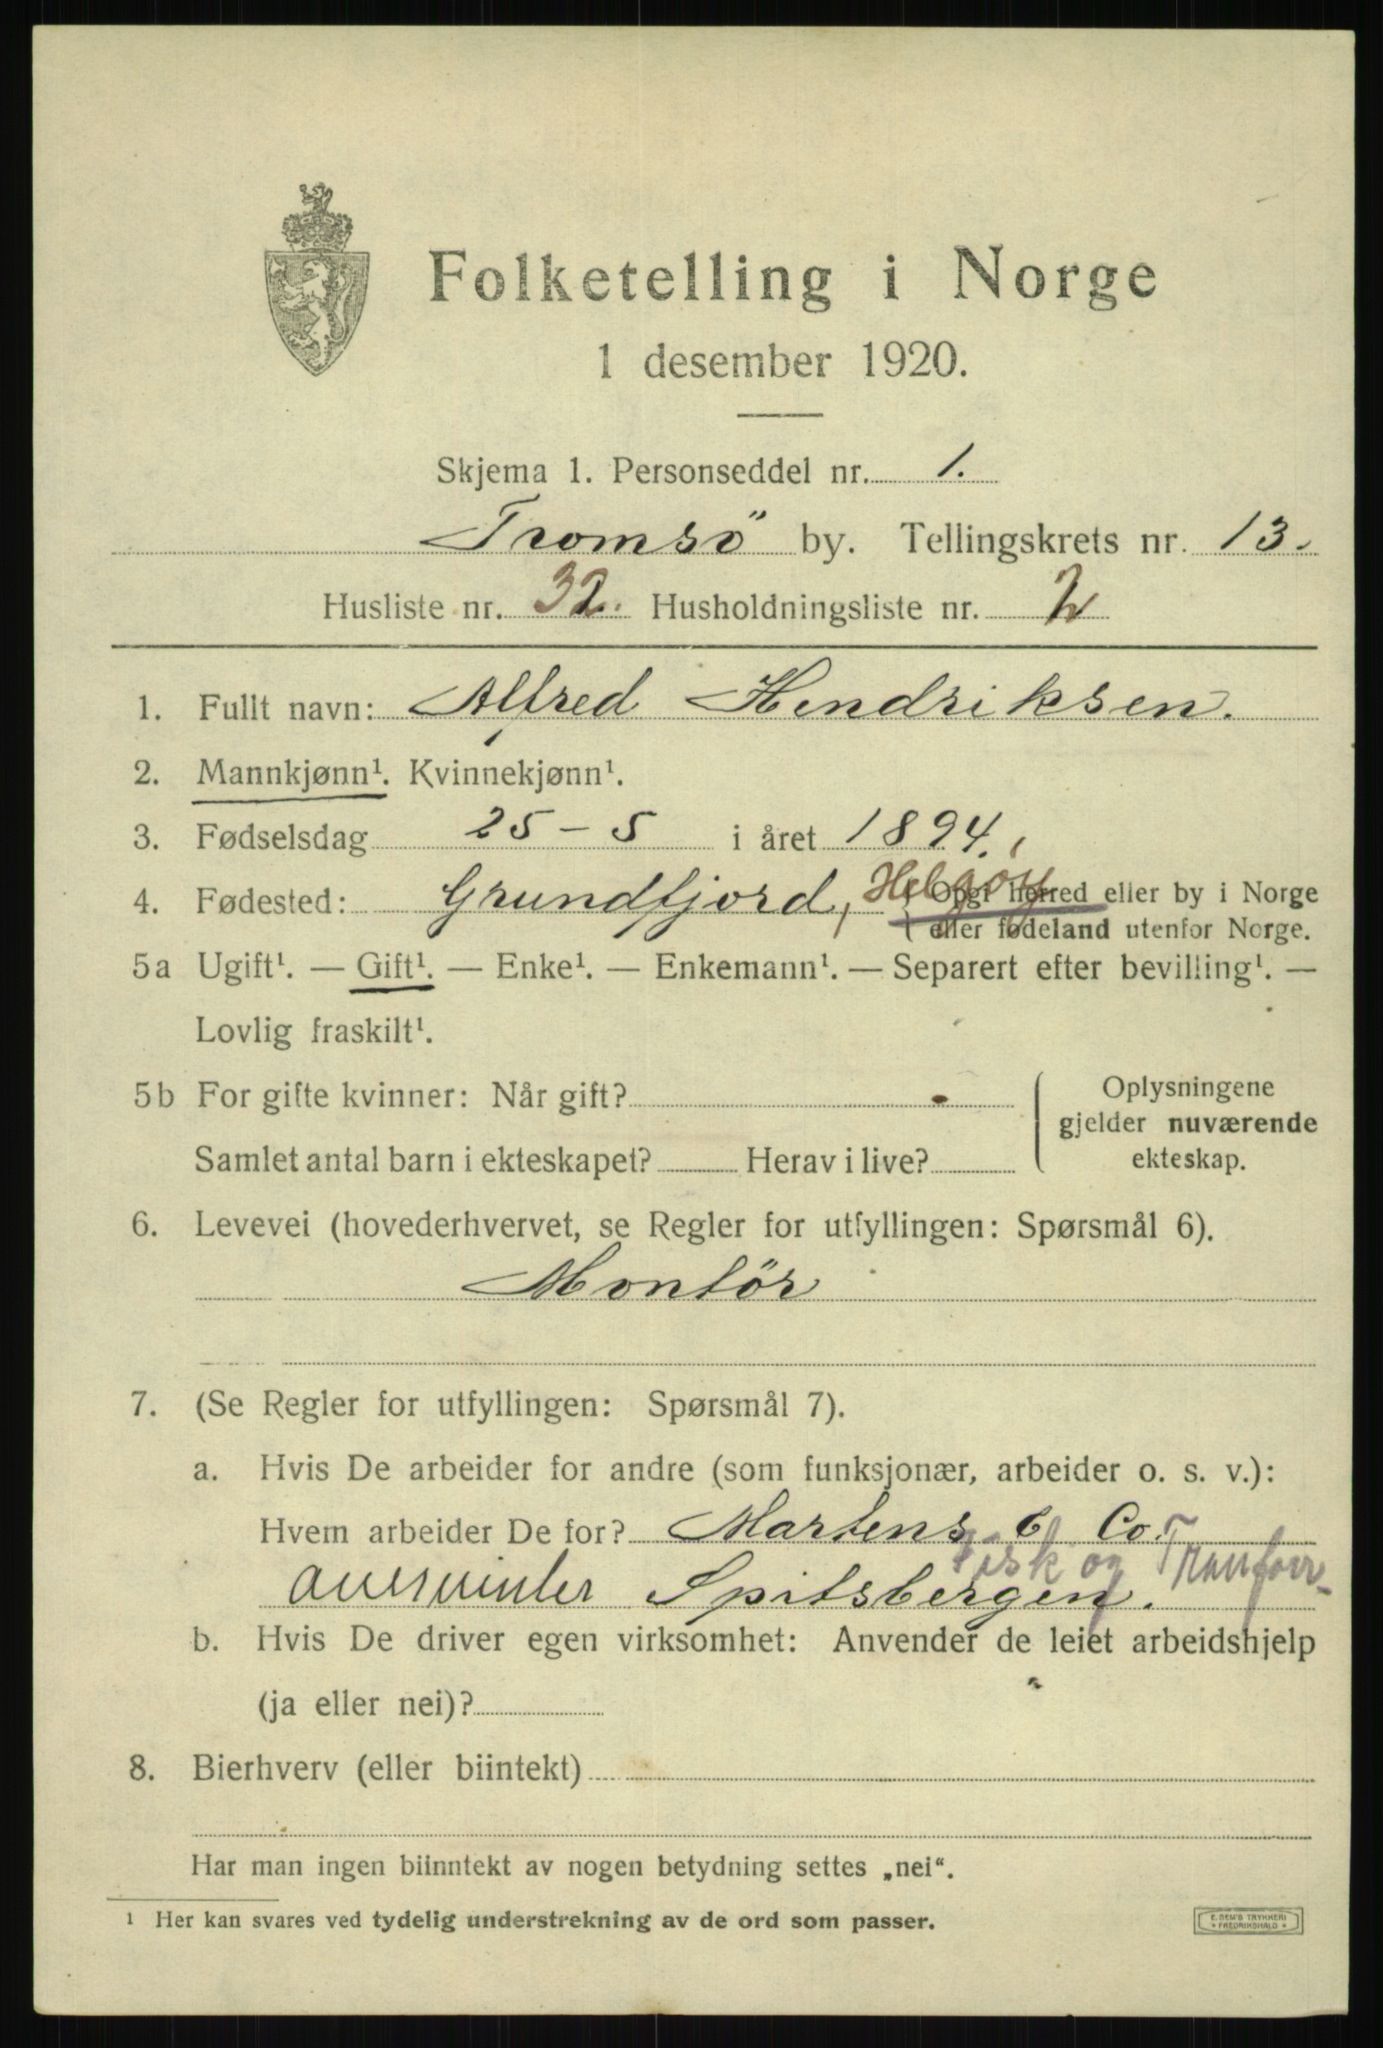 Folketelling i Norge
1 desember 1920.
Skjema 1. Personseddel nr. 1.
Tromsö by. Tellingskrets nr. 13.
Husliste nr. 32. Husholdningsliste nr. 2
1. Fullt navn: Alfred Hendriksen.
2. Mannkjønn¹. Kvinnekjønn¹.
3. Fødselsdag 25-5 i året 1894.
4. Fødested: Grundfjord, Helgöy { Opgi herred eller by i Norge
eller fødeland utenfor Norge.
5a Ugift¹. — Gift¹. — Enke¹. — Enkemann¹. — Separert efter bevilling¹. —
Lovlig fraskilt¹.
5b For gifte kvinner: Når gift?
Samlet antal barn i ekteskapet? Herav i live?
Oplysningene
gjelder nuværende
ekteskap.
6. Levevei (hovederhvervet, se Regler for utfyllingen: Spørsmål 6).
Montör
7. (Se Regler for utfyllingen: Spørsmål 7).
a. Hvis De arbeider for andre (som funksjonær, arbeider o. s. v.):
Hvem arbeider De for? Martens & Co.
Fisk og Tranforr.
Spitsbergen.
b. Hvis De driver egen virksomhet: Anvender de leiet arbeidshjelp
(ja eller nei)?
8. Bierhverv (eller biintekt)
Har man ingen biinntekt av nogen betydning settes „nei“.
¹ Her kan svares ved tydelig understrekning av de ord som passer.
E. SEM'S TRYKKERI
FREDRIKSHALD